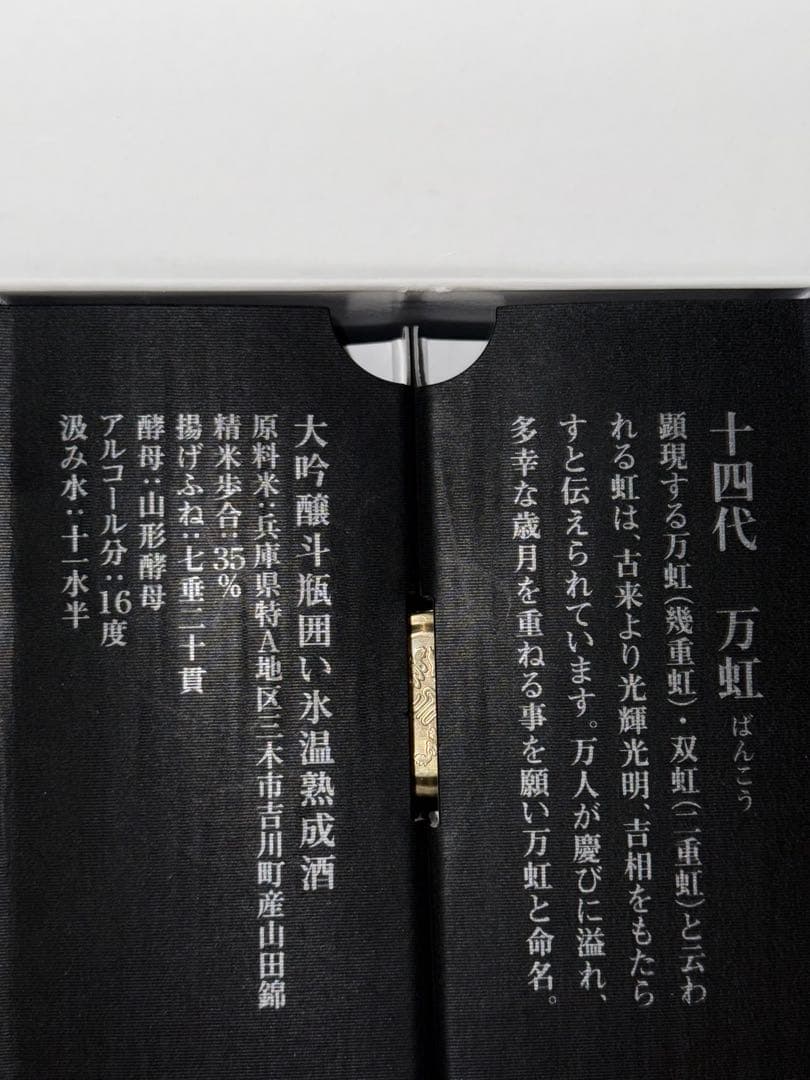 十四代 万虹 ばんこう
顕現する万虹(幾重虹)・双虹(二重虹)と云わ
れる虹は、古来より光輝光明、吉相をもたら
すと伝えられています。万人が慶びに溢れ、
多幸な歳月を重ねる事を願い万虹と命名。
大吟醸斗瓶囲い氷温熟成酒
原料米:兵庫県特A地区三木市吉川町産山田錦
精米歩合:35%
揚げふね:七垂二十貫
酵母:山形酵母
アルコール分:16度
汲み水:十一水半